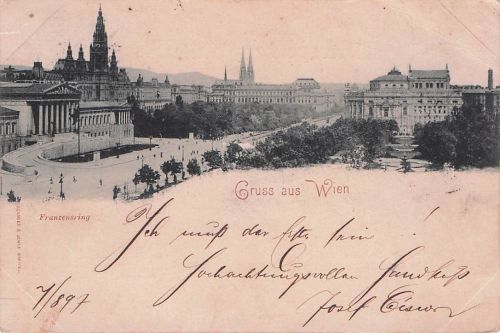 Gruss aus Wien
Franzensring
Ich muß der Erste sein!
Hochachtungsvollen Handkuß
Josef
7/8 97